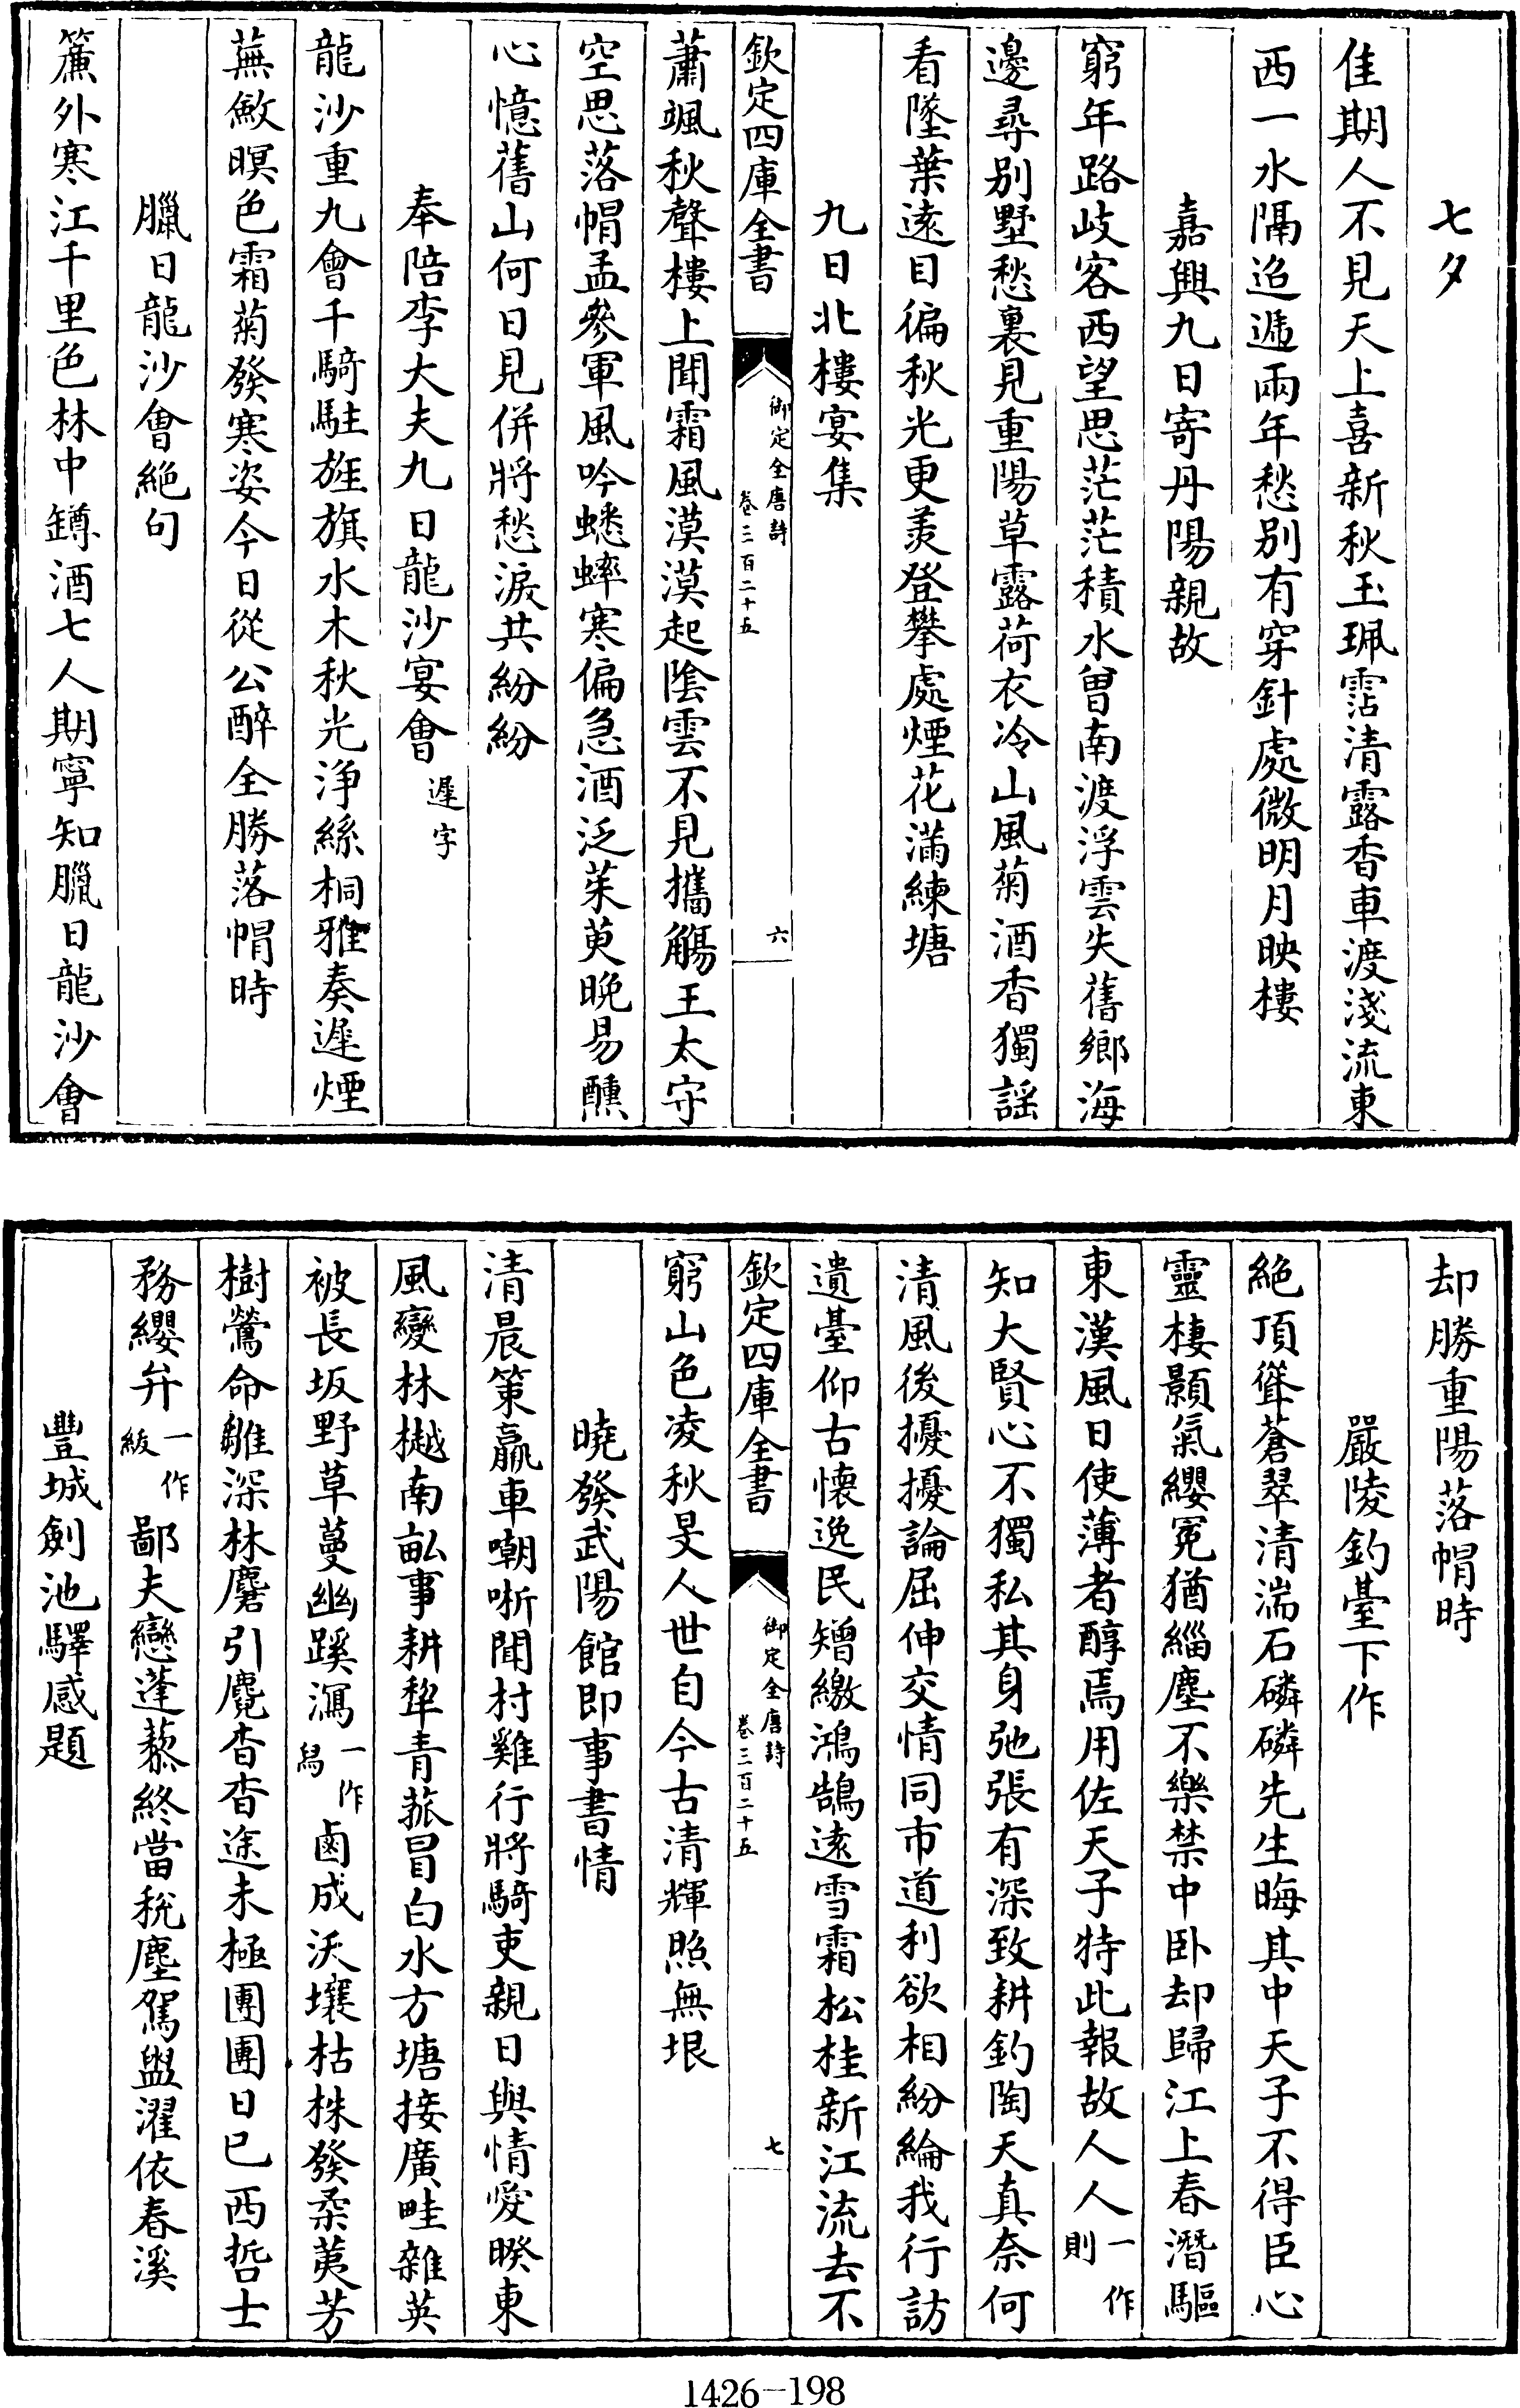 七夕
佳期人不見天上喜新秋玉珮霑清露香車渡淺流東
西一水隔迢遞兩年愁別有穿針處微明月映樓
嘉興九日寄丹陽親故
窮年路歧客西望思茫茫積水曾南渡浮雲失舊鄉海
邊尋別墅愁裏見重陽草露荷衣冷山風菊酒香獨謡
看墜葉遠目徧秋光更羨登攀處煙花滿練塘
九日北樓宴集
欽定四庫全書
御定全唐詩
卷三百二十五
六
蕭颯秋聲樓上聞霜風漠漠起陰雲不見攜觴王太守
空思落帽孟參軍風吟蟋蟀寒偏急酒泛茱萸晚易醺
心憶舊山何日見併將愁淚共紛紛
奉陪李大夫九日龍沙宴會遲字
龍沙重九會千騎駐旌旗水木秋光淨絲桐雅奏遲煙
蕪斂暝色霜菊發寒姿今日從公醉全勝落帽時
臘日龍沙會絕句
簾外寒江千里色林中罇酒七人期寧知臘日龍沙會
却勝重陽落帽時
嚴陵釣臺下作
絕頂聳蒼翠清湍石磷磷先生晦其中天子不得臣心
靈棲顥氣纓冕猶緇塵不樂禁中卧却歸江上春潛驅
東漢風日使薄者醇焉用佐天子特此報故人人一作則
知大賢心不獨私其身弛張有深致耕釣陶天真奈何
清風後擾擾論屈伸交情同市道利欲相紛綸我行訪
遺臺仰古懷逸民矰繳鴻鵠遠雪霜松桂新江流去不
欽定四庫全書
御定全唐詩
卷三百二十五
七
窮山色凌秋旻人世自今古清輝照無垠
曉發武陽館即事書情
清晨策羸車嘲哳聞村雞行將騎吏親日與情愛暌東
風變林樾南畝事耕犂青菰冒白水方塘接廣畦雜英
被長坂野草蔓幽蹊瀉一作舄鹵成沃壤枯株發柔荑芳
樹鶯命雛深林麏引麑杳杳途未極團團日已西哲士
務纓弁一作紱鄙夫戀蓬藜終當稅塵駕盥濯依春溪
豐城劍池驛感題
1426—198